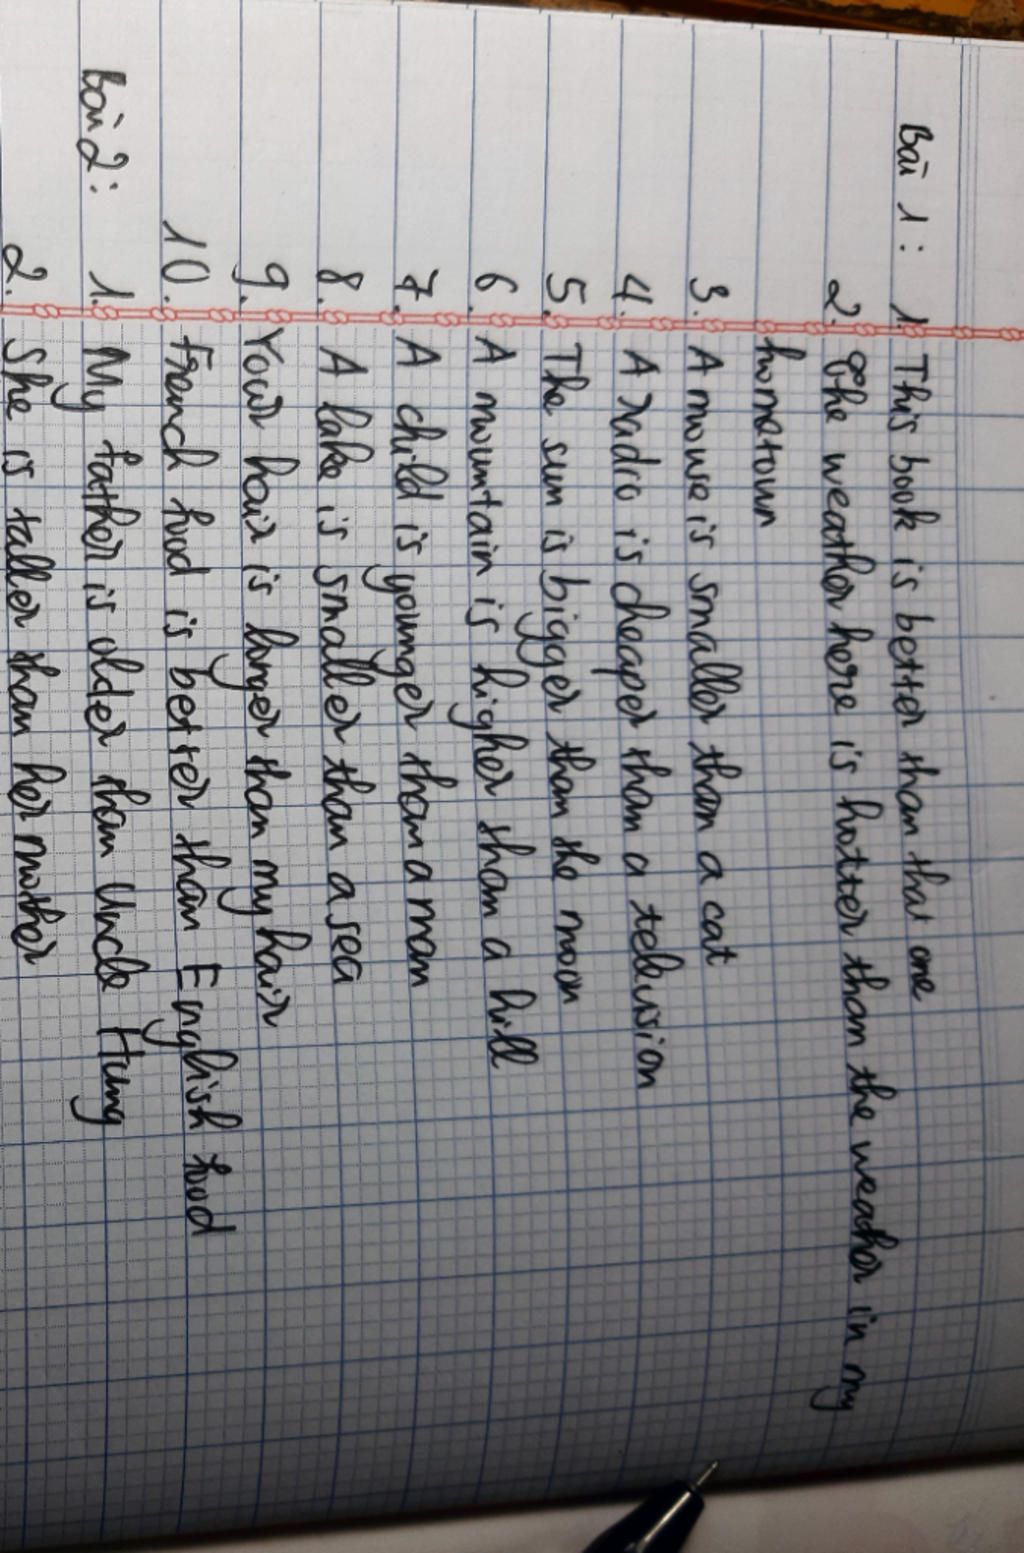 Bài 1: 1. This book is better than that one
2. The weather here is hotter than the weather in my
hometown
3. A mouse is smaller than a cat
4. A radio is cheaper than a television
5. The sun is bigger than the moon
6. A mountain is higher than a hill
7. A child is younger than a man
8. A lake is smaller than a sea
9. Your hair is longer than my hair
10. Franch food is better than English food
Bài 2: 1. My father is older than Uncle Hung
2. She is taller than her mother